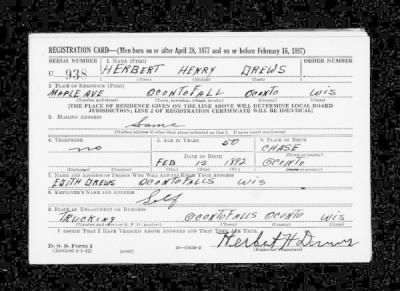 REGISTRATION CARD—(Men born on or after April 28, 1877 and on or before February 16, 1897)
SERIAL NUMBER 1. NAME (Print) ORDER NUMBER
U 938 HERBERT HENRY DREWS
(First) (Middle) (Last)
2. PLACE OF RESIDENCE (Print)
MAPLE AVE OCONTOFALL OCONTO WIS
(Number and street) (Town, township, village, or city) (County) (State)
[THE PLACE OF RESIDENCE GIVEN ON THE LINE ABOVE WILL DETERMINE LOCAL BOARD
JURISDICTION; LINE 2 OF REGISTRATION CERTIFICATE WILL BE IDENTICAL]
3. MAILING ADDRESS
Same
[Mailing address if other than place indicated on line 2. If same insert word same]
4. TELEPHONE 5. AGE IN YEARS 50 6. PLACE OF BIRTH
no DATE OF BIRTH CHASE
(Town or county)
FEB 12 1892 OCONTO
(Exchange) (Number) (Mo.) (Day) (Yr.) (State or country)
7. NAME AND ADDRESS OF PERSON WHO WILL ALWAYS KNOW YOUR ADDRESS
EDITH DREWS OCONTOFALLS WIS
8. EMPLOYER'S NAME AND ADDRESS
Self
9. PLACE OF EMPLOYMENT OR BUSINESS
TRUCKING OCONTOFALLS OCONTO WIS
(Number and street or R. F. D. number) (Town) (County) (State)
I AFFIRM THAT I HAVE VERIFIED ABOVE ANSWERS AND THAT THEY ARE TRUE.
D. S. S. Form 1
(Revised 4-1-42) (over) Herbert H Drews